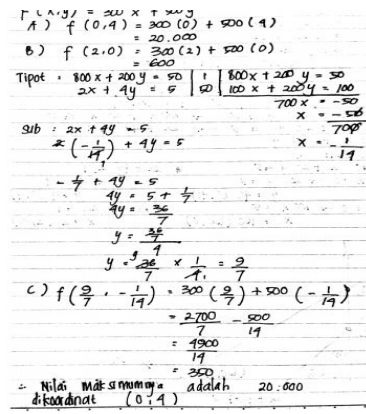 f(x,y) = 300 x + 500 y
A) f (0,4) = 300 (0) + 500 (4)
= 20.000
B) f (2,0) = 300 (2) + 500 (0)
= 600
Tipot : 800x + 200y = 50 | 1 | 800x + 200 y = 50
2x + 4y = 5 | 50 | 100 x + 200y = 100
700x = -50
x = -50
700
sub : 2x + 4y = 5
x = -1
14
2 (-1/14) + 4y = 5
-1/7 + 4y = 5
4y = 5 + 1/7
4y = 36/7
y = 36/7
4
y = 36/7 x 1/4 = 9/7
c) f (9/7 , -1/14) = 300 (9/7) + 500 (-1/14)
= 2700/7 - 500/14
= 4900/14
= 350
∴ Nilai maksimumnya adalah 20.000
dikoordinat (0,4)